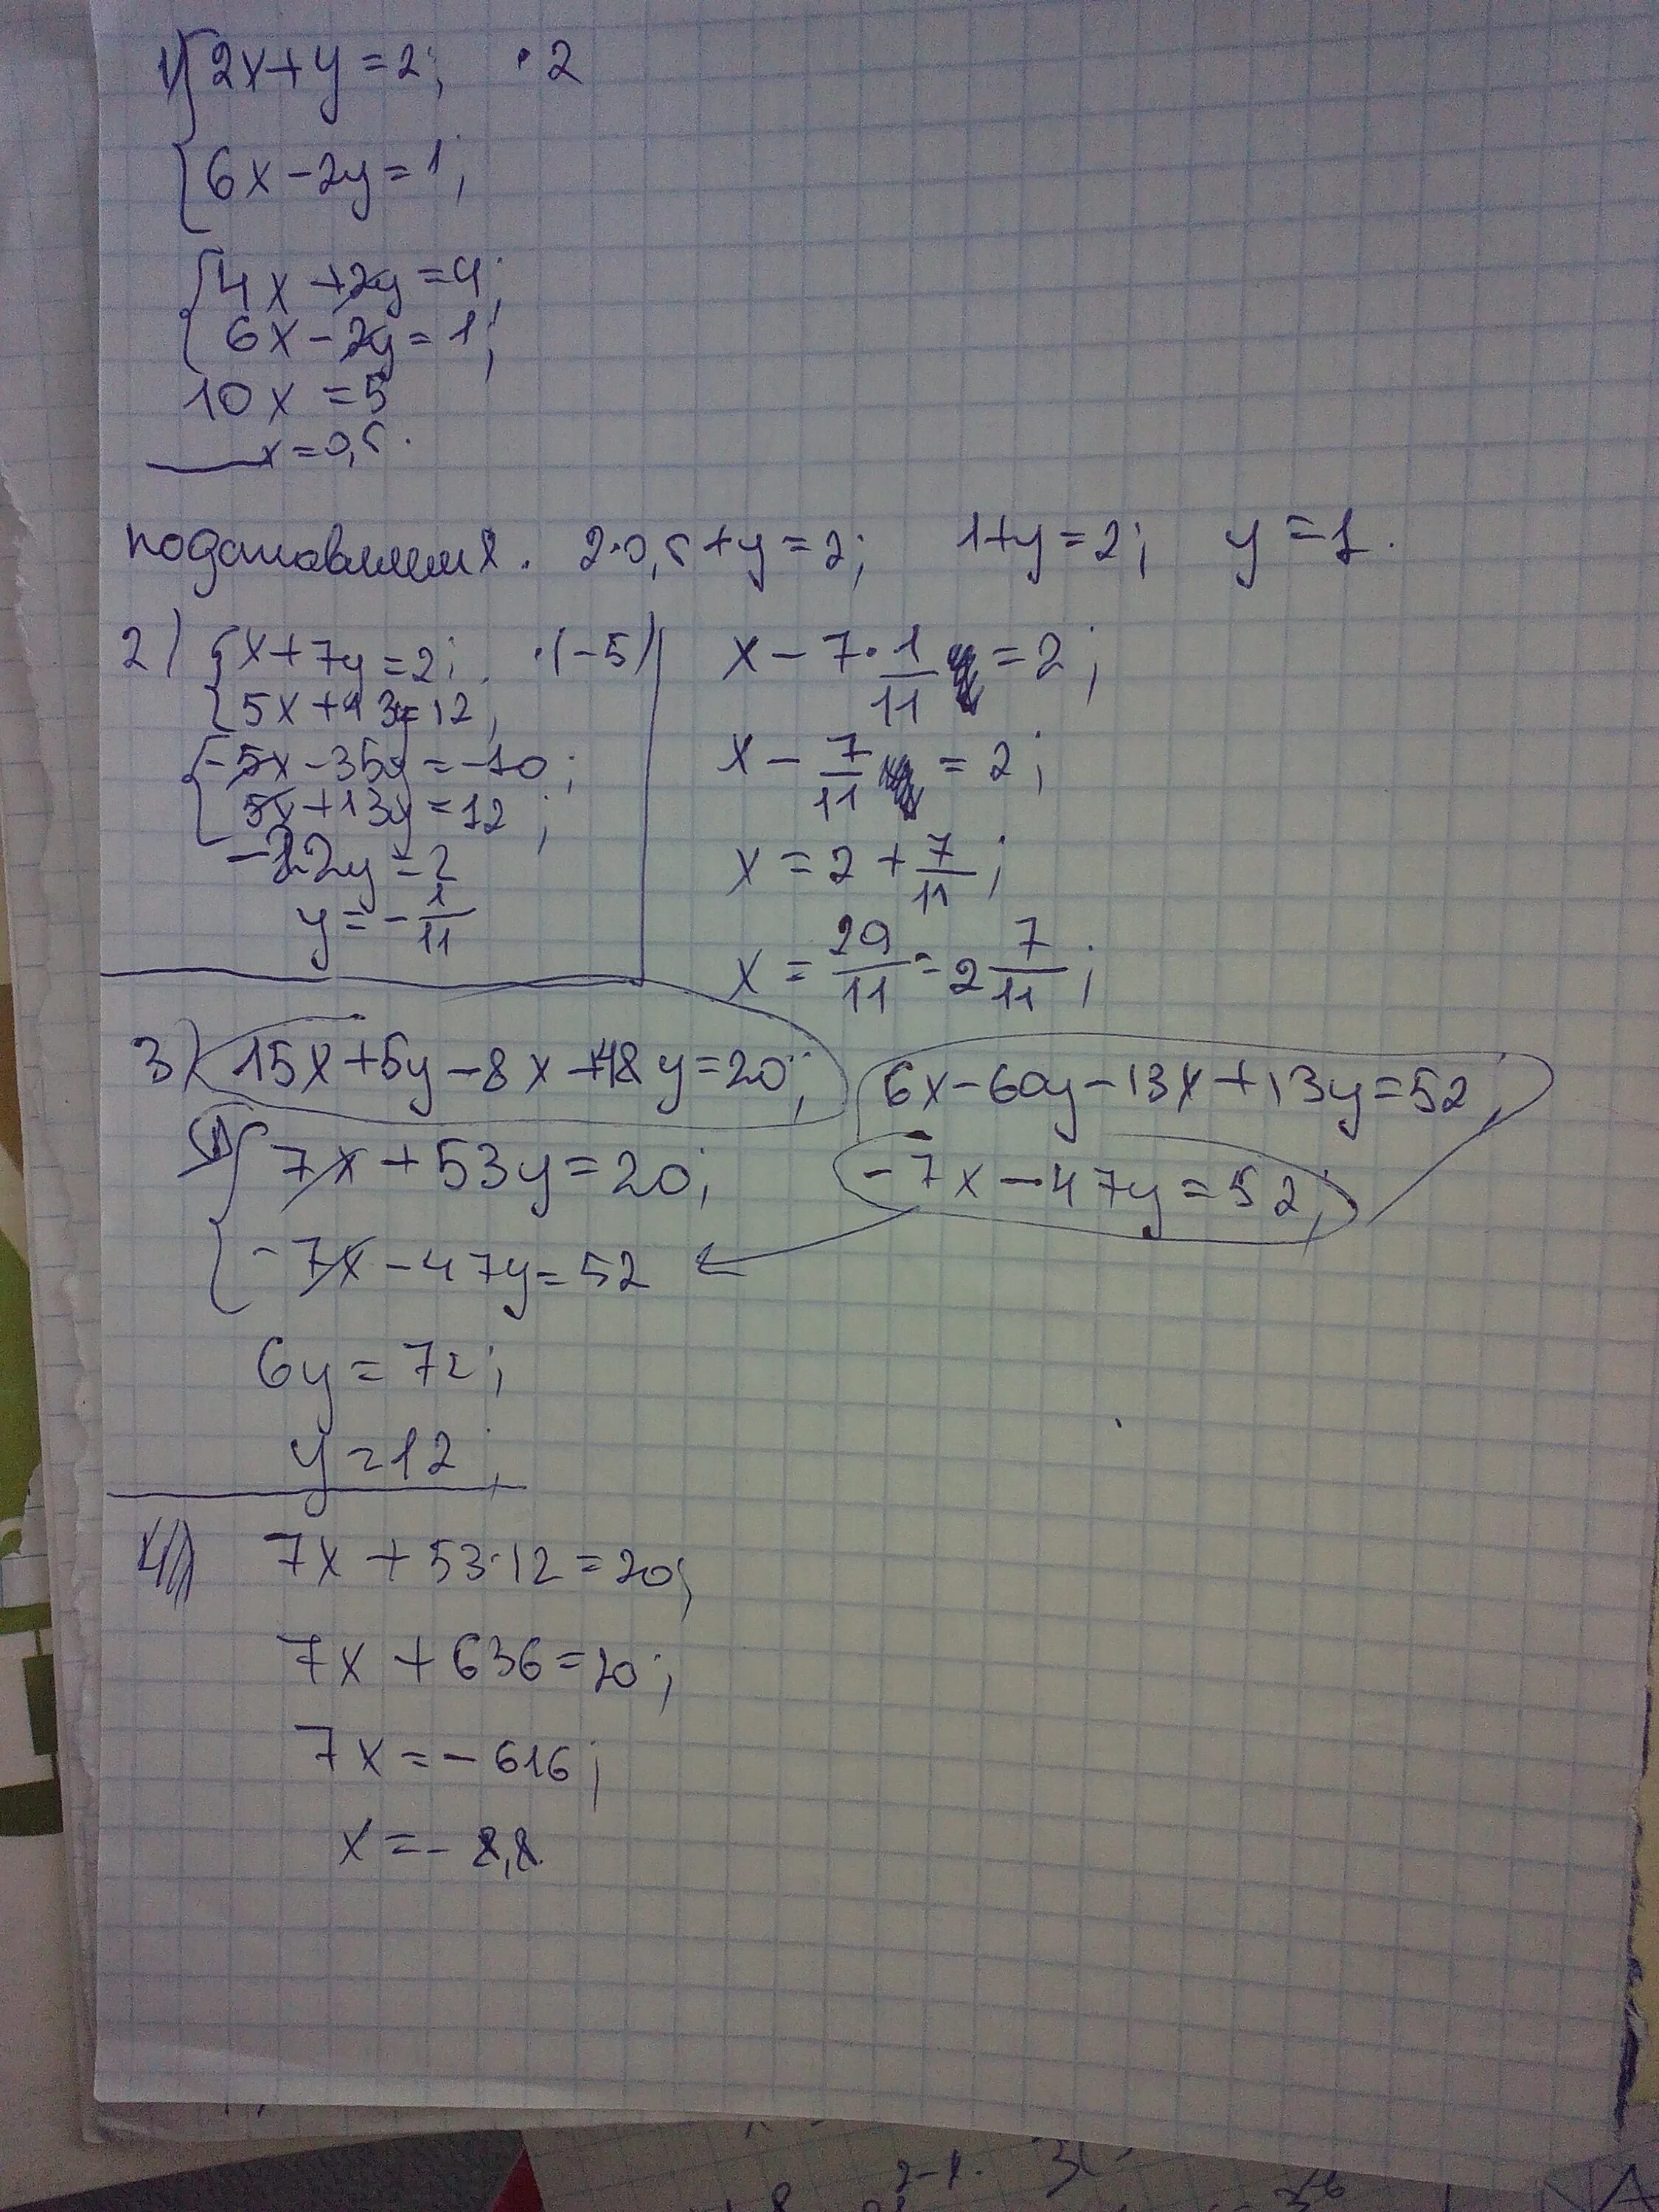 1) { 2x+y=2; ·2
{ 6x-2y=1;
{ 4x+2y=4;
6x-2y=1;
10x=5
x=0,5.
подставляем x. 2·0,5+y=2; 1+y=2; y=1.
2) { x+7y=2; ·(-5)
5x+13y=12;
{ -5x-35y=-10;
5x+13y=12;
-22y=2
y=-1/11
x-7·1/11=2;
x-7/11=2;
x=2+7/11;
x=29/11=2 7/11;
3) 15x+5y-8x+48y=20; 6x-60y-13x+13y=52;
{ 7x+53y=20; -7x-47y=52;
-7x-47y=52
6y=72;
y=12;
7x+53·12=20;
7x+636=20;
7x=-616;
x=-8,8.